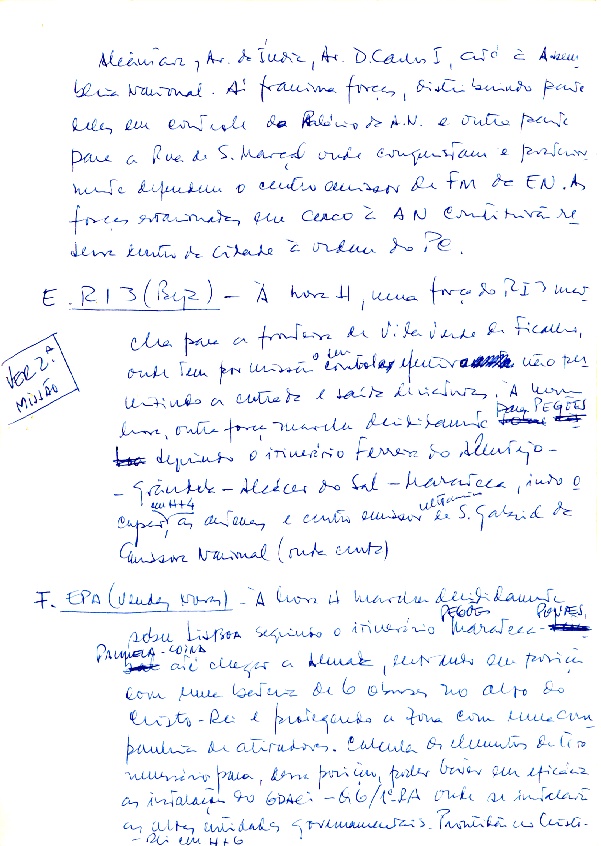 Alcântara, Av. da Índia, Av. D. Carlos I, até à Assem
bleia Nacional. Aí fraciona forças, distribuindo parte
delas em controle do Palácio da A.N. e outra parte
para a Rua de S. Marçal onde conquistam e posterior
mente defendem o centro emissor de FM da EN. As
forças estacionadas em cerco à AN constituirão re
serva dentro da cidade à ordem do PC.
E. RI3 (Beja) - À hora H, uma força do RI3 mar
cha para a fronteira de Vila Verde de Ficalho,
onde tem por missão o seu controle não per
mitindo a entrada e saída de viaturas. À mesma
hora, outra força marcha decididamente para PEGÕES
seguindo o itinerário Ferreira do Alentejo -
- Grândola - Alcácer do Sal - Marateca, indo o
em H+4
ocupar, as antenas e centro emissor ultramarino de S. Gabriel da
Emissora Nacional (onda curta)
VER 2.ª
MISSÃO
F. EPA (Vendas Novas) - À hora H marcha decididamente
sobre LISBOA seguindo o itinerário PEGÕES Marateca -
PALMELA - COINA
até chegar a Almada, entrando em posição
com uma bateria de 6 obuses no alto do
Cristo-Rei e protegendo a zona com uma com
panhia de atiradores. Calcula os elementos de tiro
necessários para, dessa posição, poder bater em eficácia
as instalações do GDACI - QG/1ª RA onde se instalarão
as altas entidades governamentais. Prontidão no Cristo-
- Rei em H+6